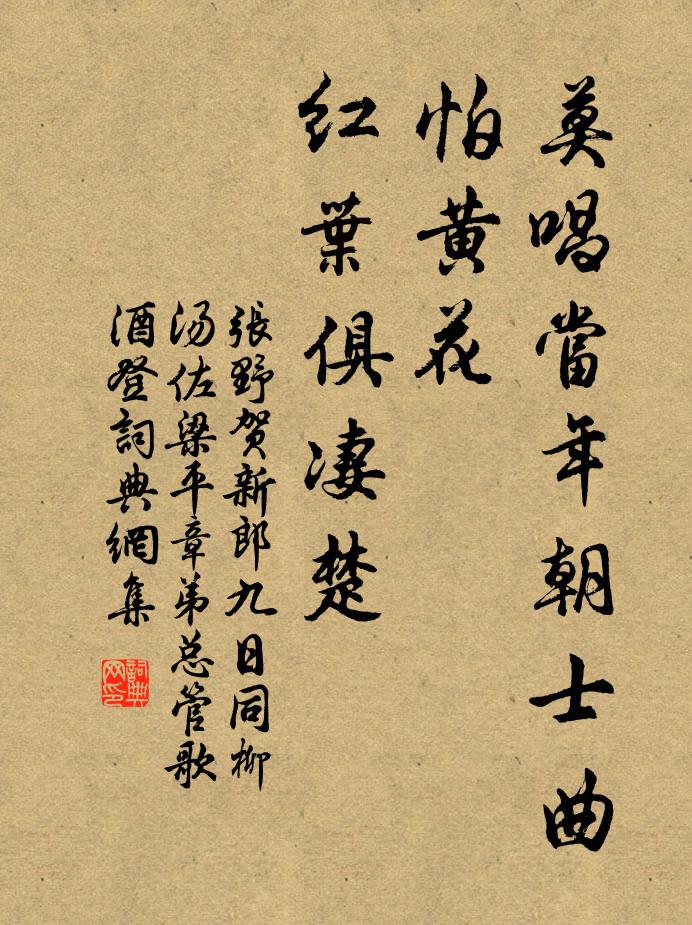 莫唱當年朝士曲
怕黄花
紅葉俱凄楚
張野賀新郎九日同柳
湯佐梁平章弟总管歌
酒登詞典網集
詞典网印